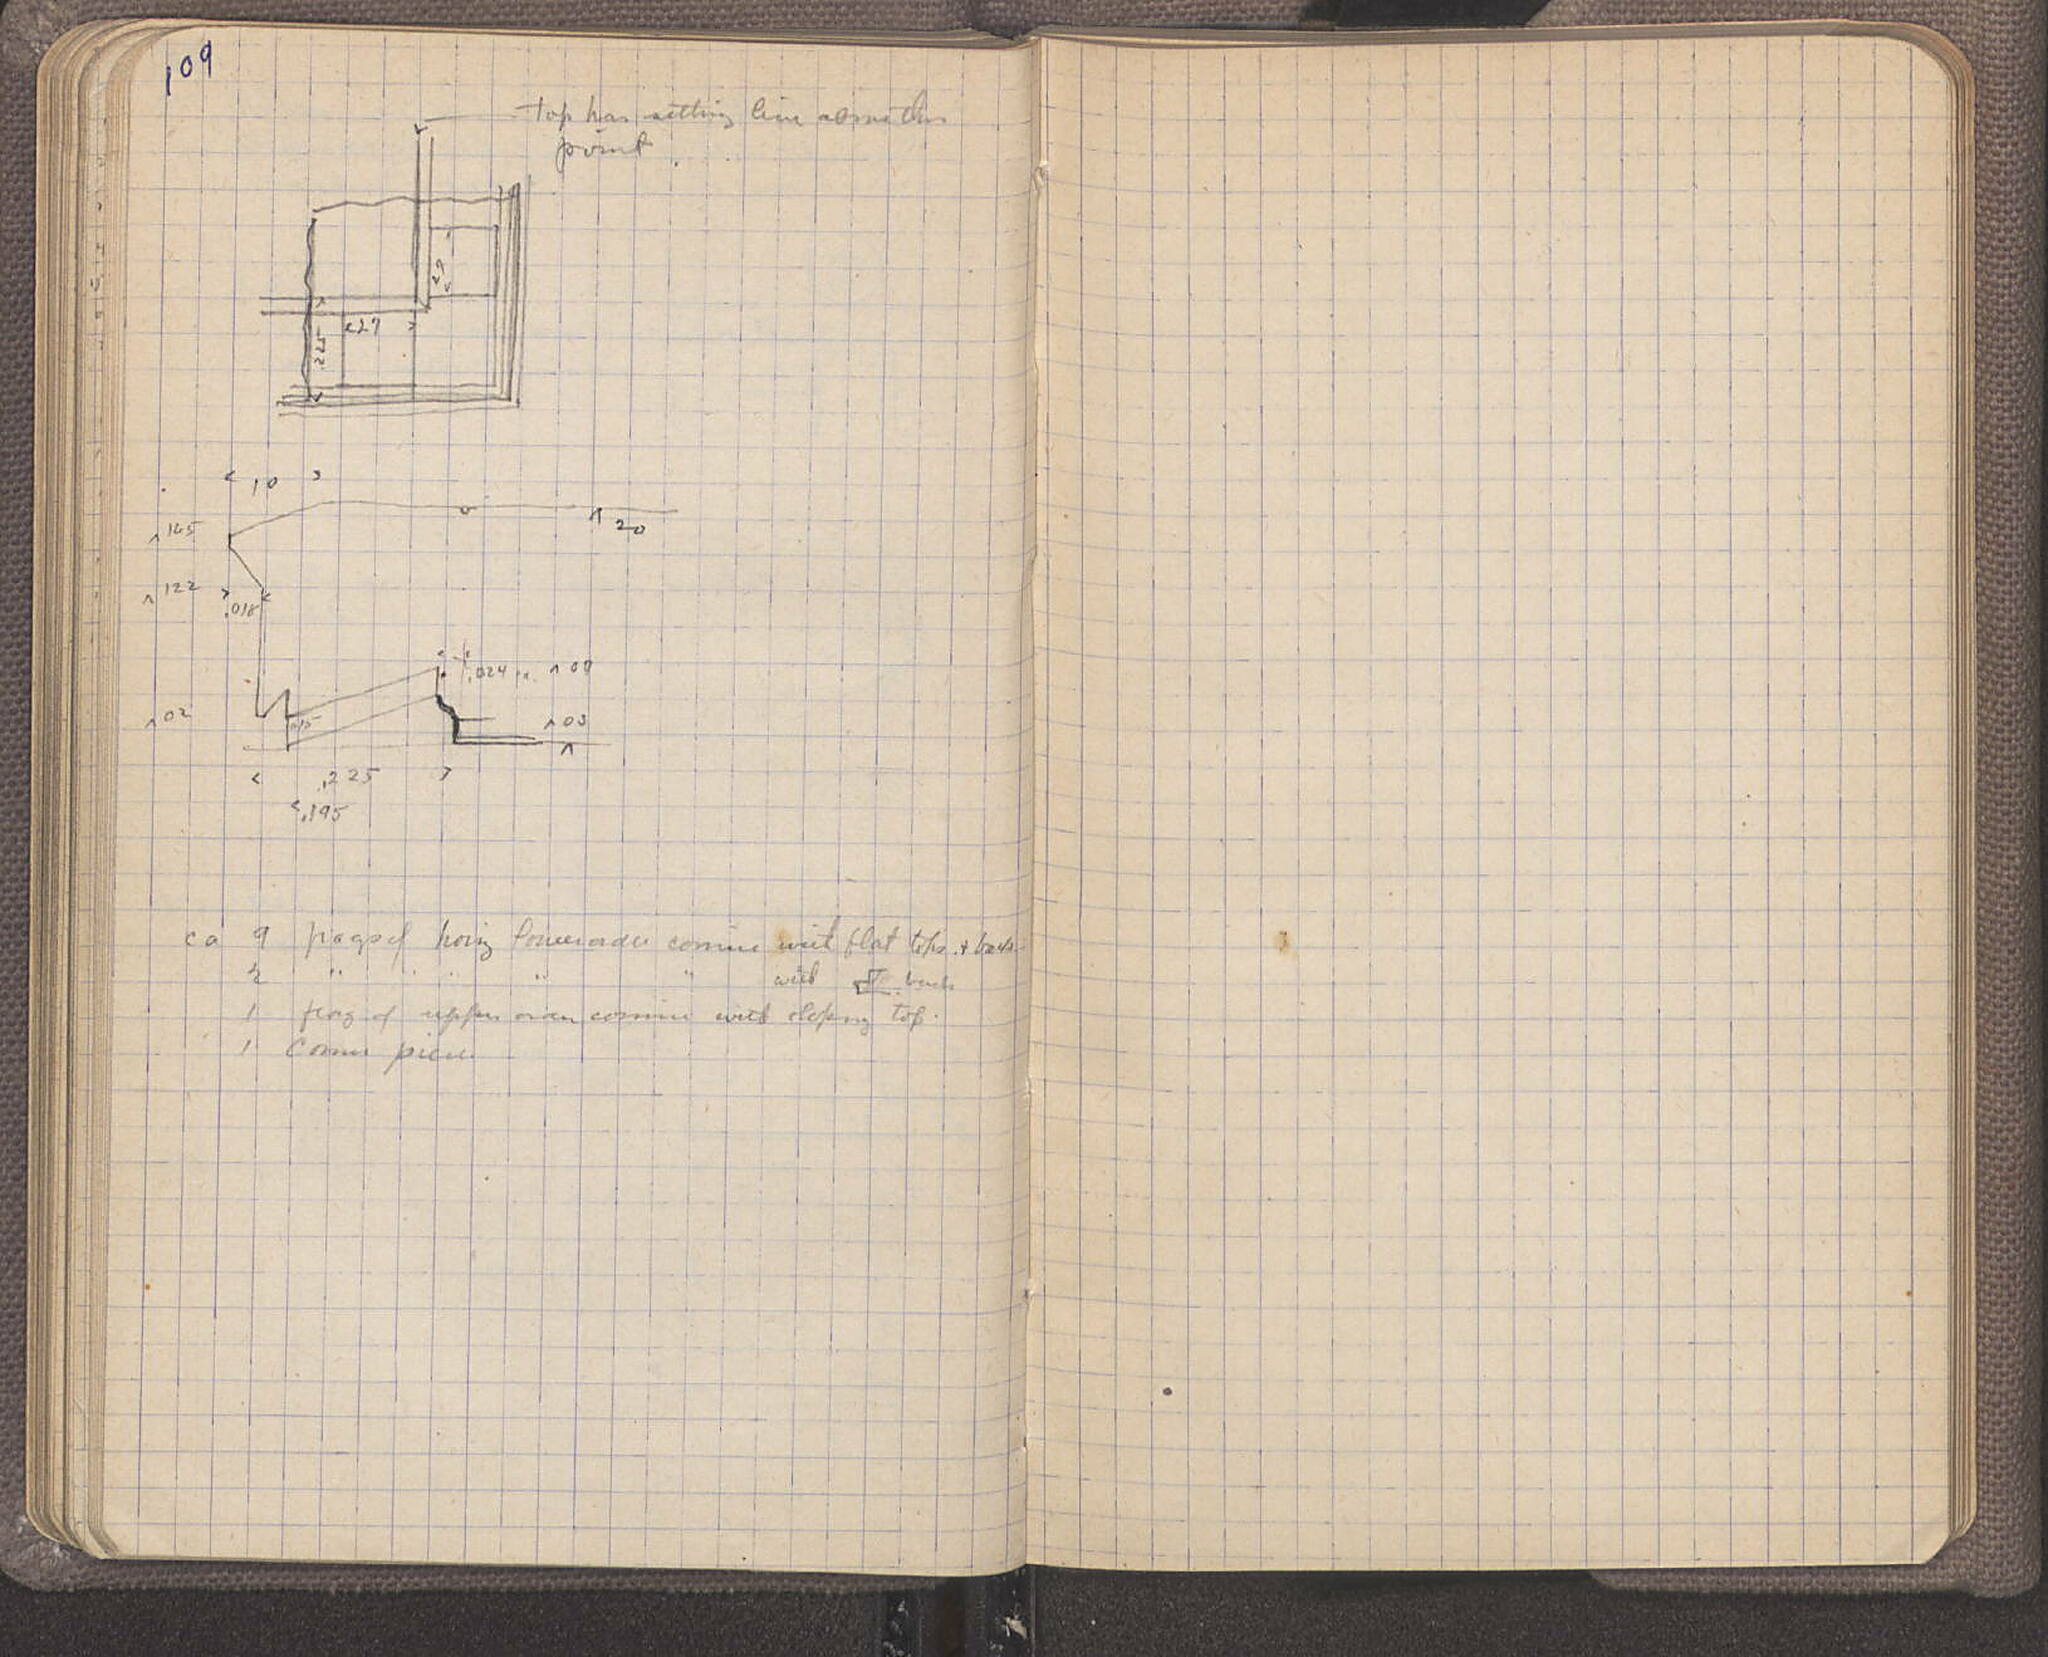 109
top has setting line along this
point.
.27
<27>
.225
10
^20
^145
^122
.018
.024
^03
^02
.015
.225
.195
ca 9 frags of horiz lower order cornice with flat tops & backs
2 " " " " with back
1 frag of upper order cornice with sloping top.
1 Corner piece